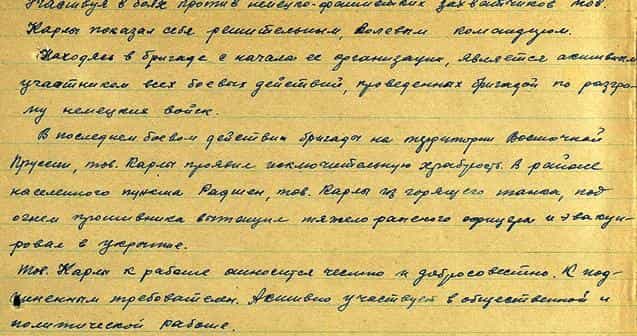 Участвуя в боях против немецко-фашистских захватчиков тов.
Карлы показал себя решительным, волевым командиром.
Находясь в бригаде с начала ее организации, является активным
участником всех боевых действий, проведенных бригадой по разгро-
му немецких войск.
В последнем боевом действии бригады на территории Восточной
Пруссии, тов. Карлы проявил исключительную храбрость. В районе
населенного пункта Радшен, тов. Карлы из горящего танка, под
огнем противника вытащил тяжело раненого офицера и эвакуи-
ровал в укрытие.
Тов. Карлы к работе относится честно и добросовестно. К под-
чиненным требователен. Активно участвует в общественной и
политической работе.